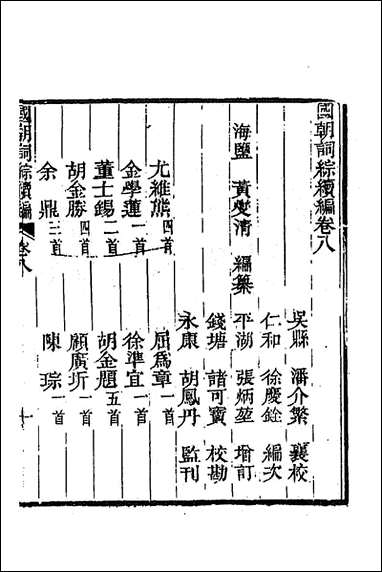 國朝詞綜續編卷八
吳縣 潘介繁 襄校
仁和 徐慶銓 編次
海鹽 黃燮清 編纂 平湖 張炳堃 增訂
錢塘 諸可寶 校勘
永康 胡鳳丹 監刊
尤維熊四首 屈爲章一首
金學蓮一首 徐準宜一首
董士錫二首 胡金題五首
胡金勝四首 顧廣圻一首
余鼎三首 陳琮一首
國朝詞綜續編 卷八 一